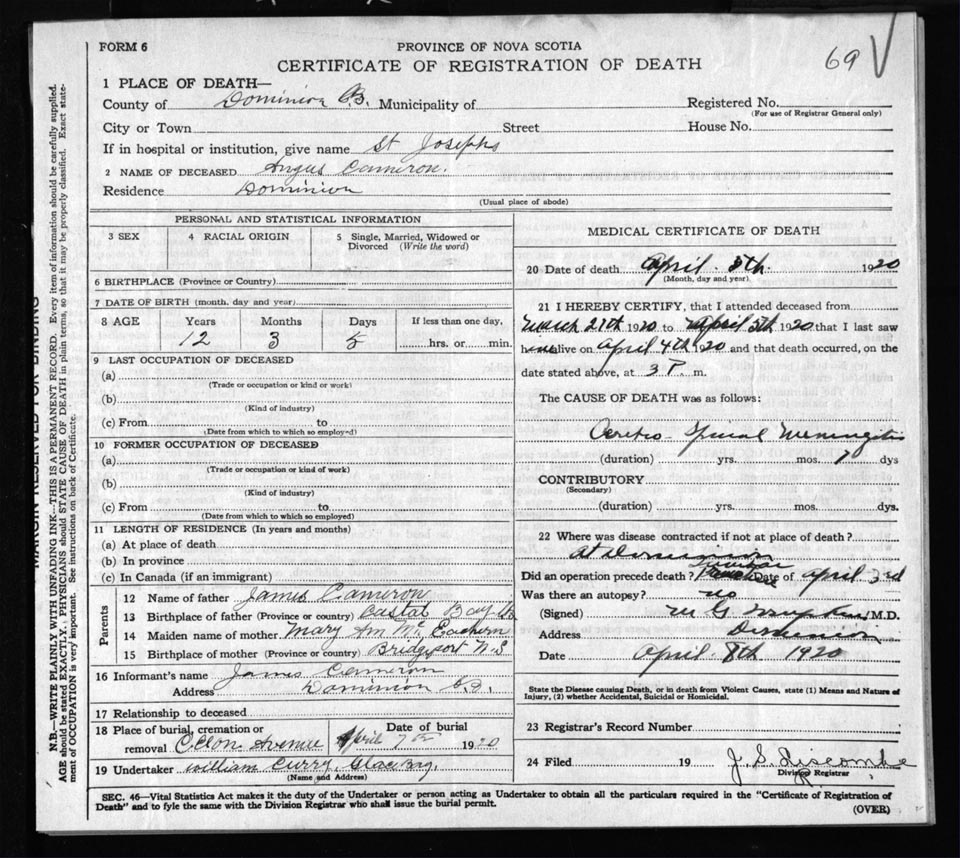 FORM 6
PROVINCE OF NOVA SCOTIA
CERTIFICATE OF REGISTRATION OF DEATH
69 V
1 PLACE OF DEATH—
County of Dominion C.B. Municipality of Registered No.
(For use of Registrar General only)
City or Town Street House No.
If in hospital or institution, give name St Josephs
2 NAME OF DECEASED Angus Cameron.
Residence Dominion
(Usual place of abode)
PERSONAL AND STATISTICAL INFORMATION
3 SEX 4 RACIAL ORIGIN 5 Single, Married, Widowed or Divorced (Write the word)
6 BIRTHPLACE (Province or Country)
7 DATE OF BIRTH (month, day and year)
8 AGE Years Months Days If less than one day,
12 3 5 hrs. or min.
9 LAST OCCUPATION OF DECEASED
(a)
(Trade or occupation or kind or work)
(b)
(Kind of industry)
(c) From to
(Date from which to which so employed)
10 FORMER OCCUPATION OF DECEASED
(a)
(Trade or occupation or kind of work)
(b)
(Kind of industry)
(c) From to
(Date from which to which so employed)
11 LENGTH OF RESIDENCE (In years and months)
(a) At place of death
(b) In province
(c) In Canada (if an immigrant)
Parents
12 Name of father James Cameron
13 Birthplace of father (Province or country) Bay
14 Maiden name of mother Mary Ann McEachern
15 Birthplace of mother (Province or country) Bridgeport N.S
16 Informant's name James Cameron
Address Dominion C.B.
17 Relationship to deceased
18 Place of burial, cremation or Date of burial
removal Avenue April 7th 1920
19 Undertaker William Curry Glace Bay.
(Name and Address)
MEDICAL CERTIFICATE OF DEATH
20 Date of death April 5th. 1920
(Month, day and year)
21 I HEREBY CERTIFY, that I attended deceased from
March 21st 1920 to April 5th 1920 that I last saw
him alive on April 4th 1920 and that death occurred, on the
date stated above, at 3 P. m.
The CAUSE OF DEATH was as follows:
Cerebro Spinal Meningitis
(duration) yrs. mos. 7 dys
CONTRIBUTORY
(Secondary)
(duration) yrs. mos. dys.
22 Where was disease contracted if not at place of death?
at Dominion
Did an operation precede death? Lumbar Date of April 3rd
Was there an autopsy? no
(Signed) M.D.
Address Dominion
Date April 8th 1920
State the Disease causing Death, or in death from Violent Causes, state (1) Means and Nature of Injury, (2) whether Accidental, Suicidal or Homicidal.
23 Registrar's Record Number
24 Filed 19 J. S. Liscombe
Division Registrar
SEC. 46—Vital Statistics Act makes it the duty of the Undertaker or person acting as Undertaker to obtain all the particulars required in the "Certificate of Registration of
Death" and to fyle the same with the Division Registrar who shall issue the burial permit.
(OVER)
MARGIN RESERVED FOR BINDING
N.B.—WRITE PLAINLY WITH UNFADING INK—THIS IS A PERMANENT RECORD. Every item of information should be carefully supplied.
AGE should be stated EXACTLY. PHYSICIANS should STATE CAUSE OF DEATH in plain terms, so that it may be properly classified. Exact statement of OCCUPATION is very important. See instructions on back of Certificate.